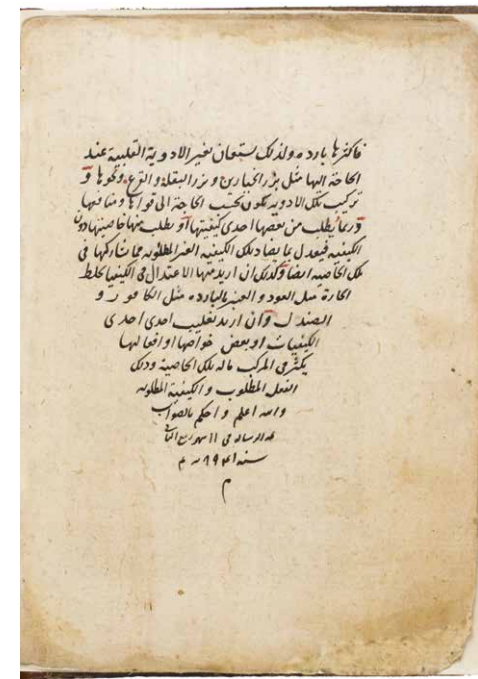 فاكثرها بارده ولذلك يستعان بغير الادوية القلبية عند
الحاجة اليها مثل بزر الخيارين و بزر البقلة والقرع ونحوها و
تركيب تلك الادويه يكون بحسب الحاجة الى قواها ومنافعها
وربما يطلب من بعضها احدى كيفيتها او يطلب منها خاصيتها دون
الكيفيه فيعدل بما يضاد تلك الكيفيه الغير المطلوبه مما شاركها في
تلك الخاصيه ايضا وكذلك ان اريد منها الاعتدال في الكيفيه يخلط
الحارة مثل العود و العنبر بالبارده مثل الكافور و
الصندل وان اريد تغليب احدى احدى
الكيفيات او بعض خواصها او افعالها
يكثر في المركب ماله تلك الخاصيه وذلك
الفعل المطلوب و الكيفية المطلوبه
والله اعلم و احكم بالصواب
الرساله في ١١ شهر ربيع الثاني
سنه
م